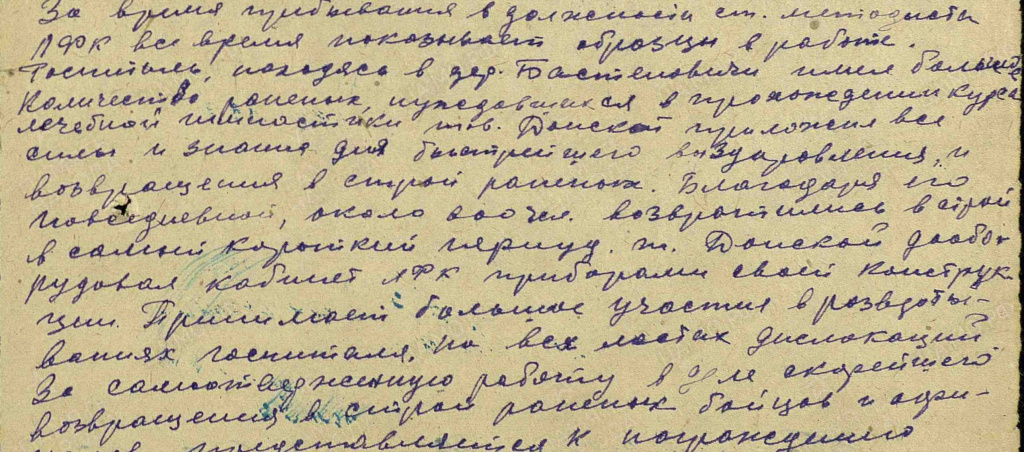 За время пребывания в должности ст. методиста
ЛФК все время показывает образцы в работе.
Госпиталь, находясь в дер. Бастеновичи имея большое
количество раненых, нуждавшихся в прохождении курса
лечебной гимностики тов. Донской приложил все
силы и знания для быстрейшего выздоровления, и
возвращения в строй раненых. Благодаря его
повседневной, около чел. возвратились в строй
в самый короткий период. т. Донской дообо-
рудовал кабинет ЛФК приборами своей конструк-
ции. Принимает большое участие в
госпиталя, на всех местах дислокаций.
За самоотверженную работу в деле скорейшего
возвращения в строй раненых бойцов и офи-
представляется к награждению